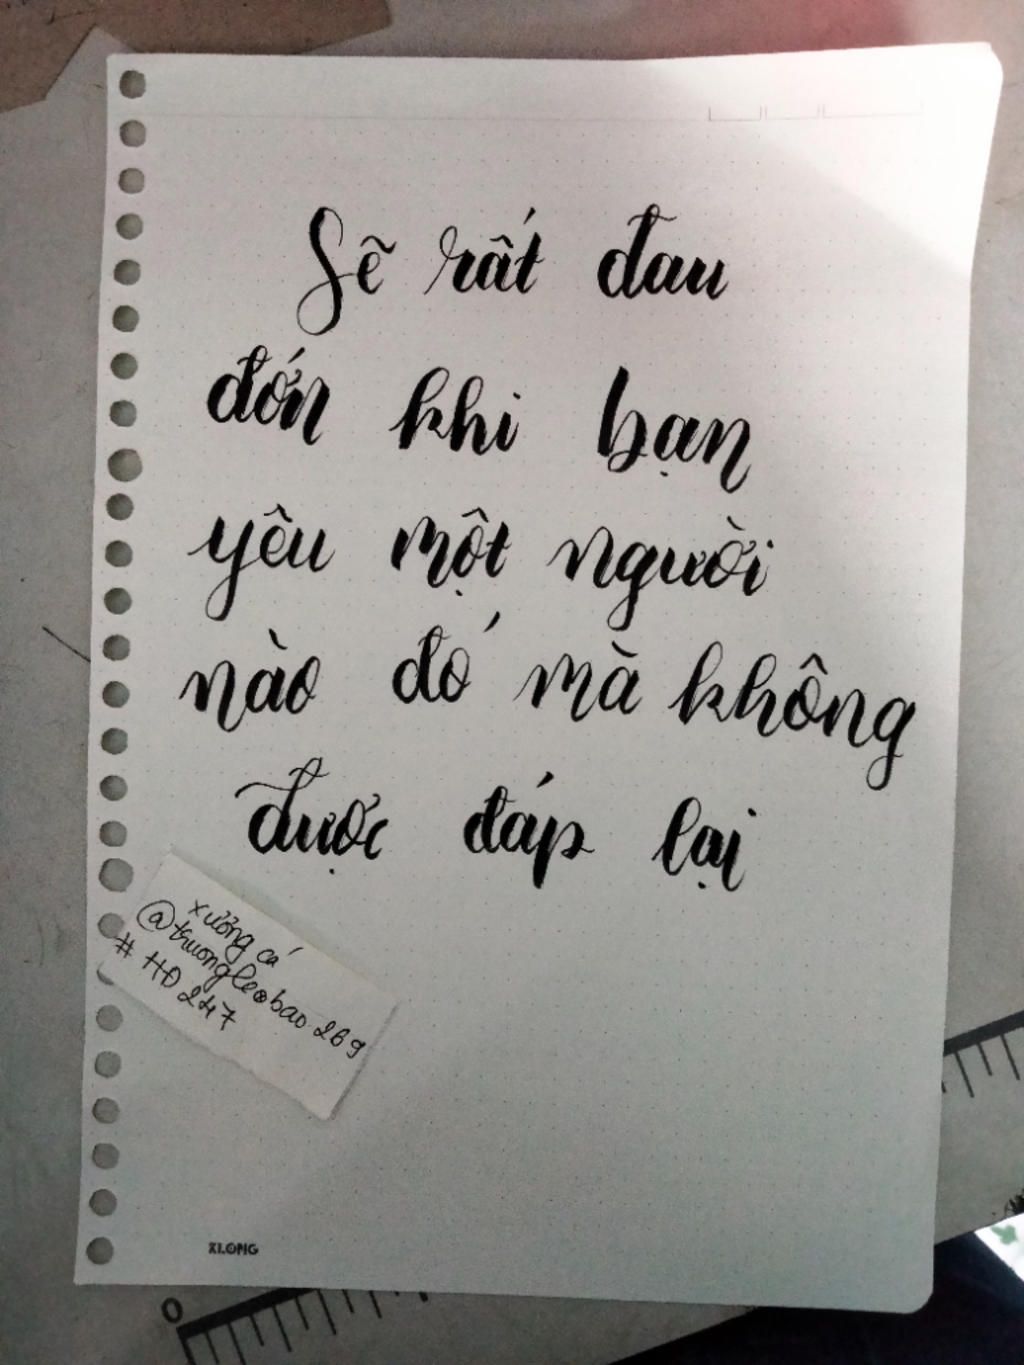 Sẽ rất đau
đớn khi bạn
yêu một người
nào đó mà không
được đáp lại
xưởng cá
@truongleobao269
# HD247
KLONG
0